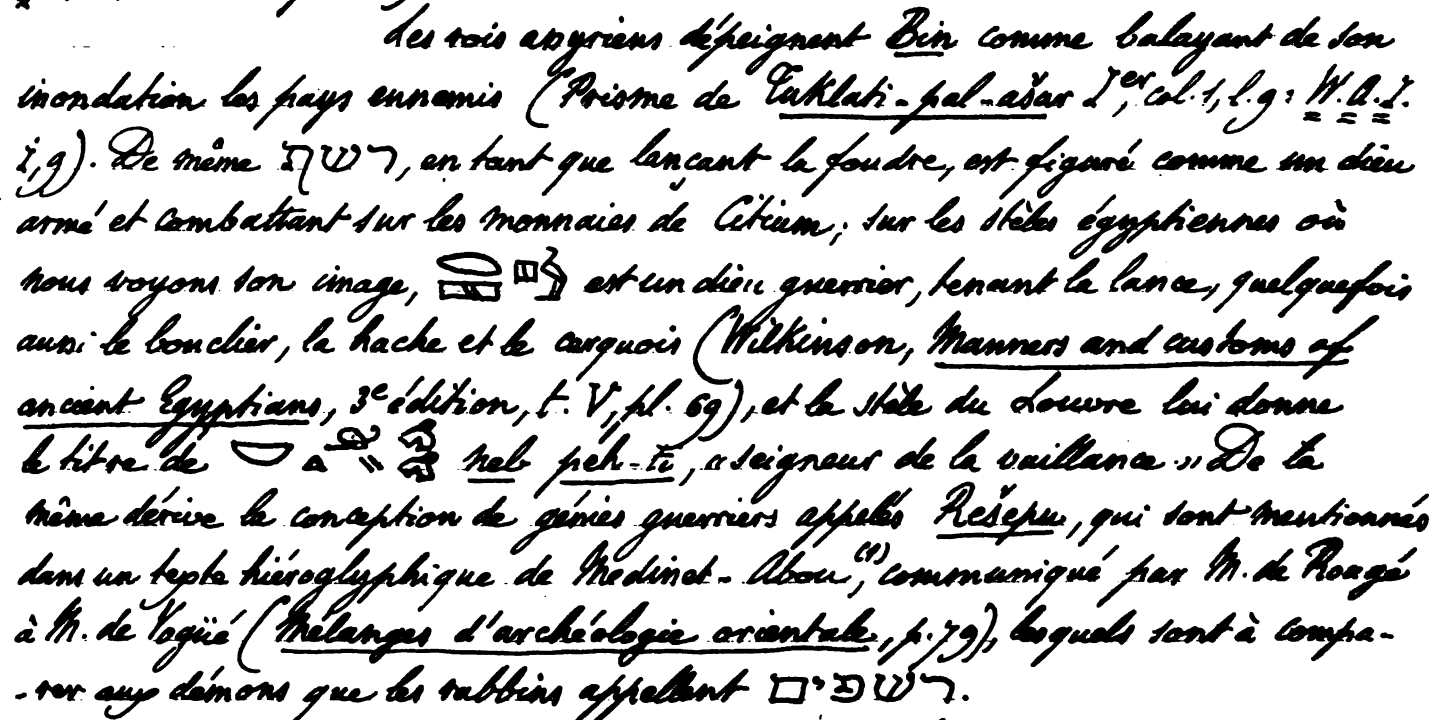 Les rois assyriens dépeignent Bin comme balayant de son
inondation les pays ennemis (Prisme de Tuklati-pal-ašar Ier, col. 1, l. 9 : W.A.I.
I, 9). De même רשף, en tant que lançant la foudre, est figuré comme un dieu
armé et combattant sur les monnaies de Citium ; sur les stèles égyptiennes où
nous voyons son image, est un dieu guerrier, tenant la lance, quelquefois
aussi le bouclier, la hache et le carquois (Wilkinson, Manners and customs of
ancient Egyptians, 3e édition, t. V, pl. 69), et la stèle du Louvre lui donne
le titre de neb peh-ti, « seigneur de la vaillance. » De là
même dérive la conception de génies guerriers appelés Rešepu, qui sont mentionnés
dans un texte hiéroglyphique de Medinet-Abou (1), communiqué par M. de Rougé
à M. de Vogüé (Mélanges d'archéologie orientale, p. 79), lesquels sont à compa-
-rer aux démons que les rabbins appellent רשפים.